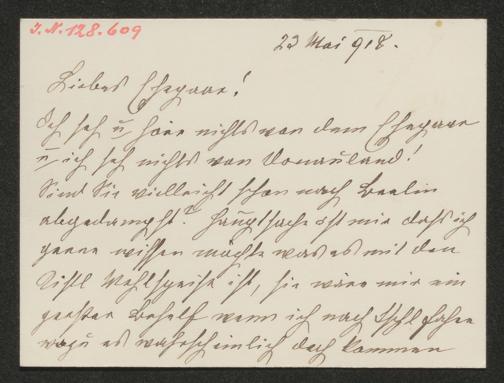 I.N.128.609
23 Mai 918.
Liebes Ehepaar!
Ich seh u höre nichts von dem Ehepaar
u ich seh nichts von Donauland!
Sind Sie vielleicht schon nach Berlin
abgedampft? Hauptsache ist mir daß ich
gerne wissen möchte was es mit den
Mehlspeise ist, sie wäre mir ein
großer Behelf wenn ich nach Ischl fahre
wozu es wahrscheinlich doch kommen